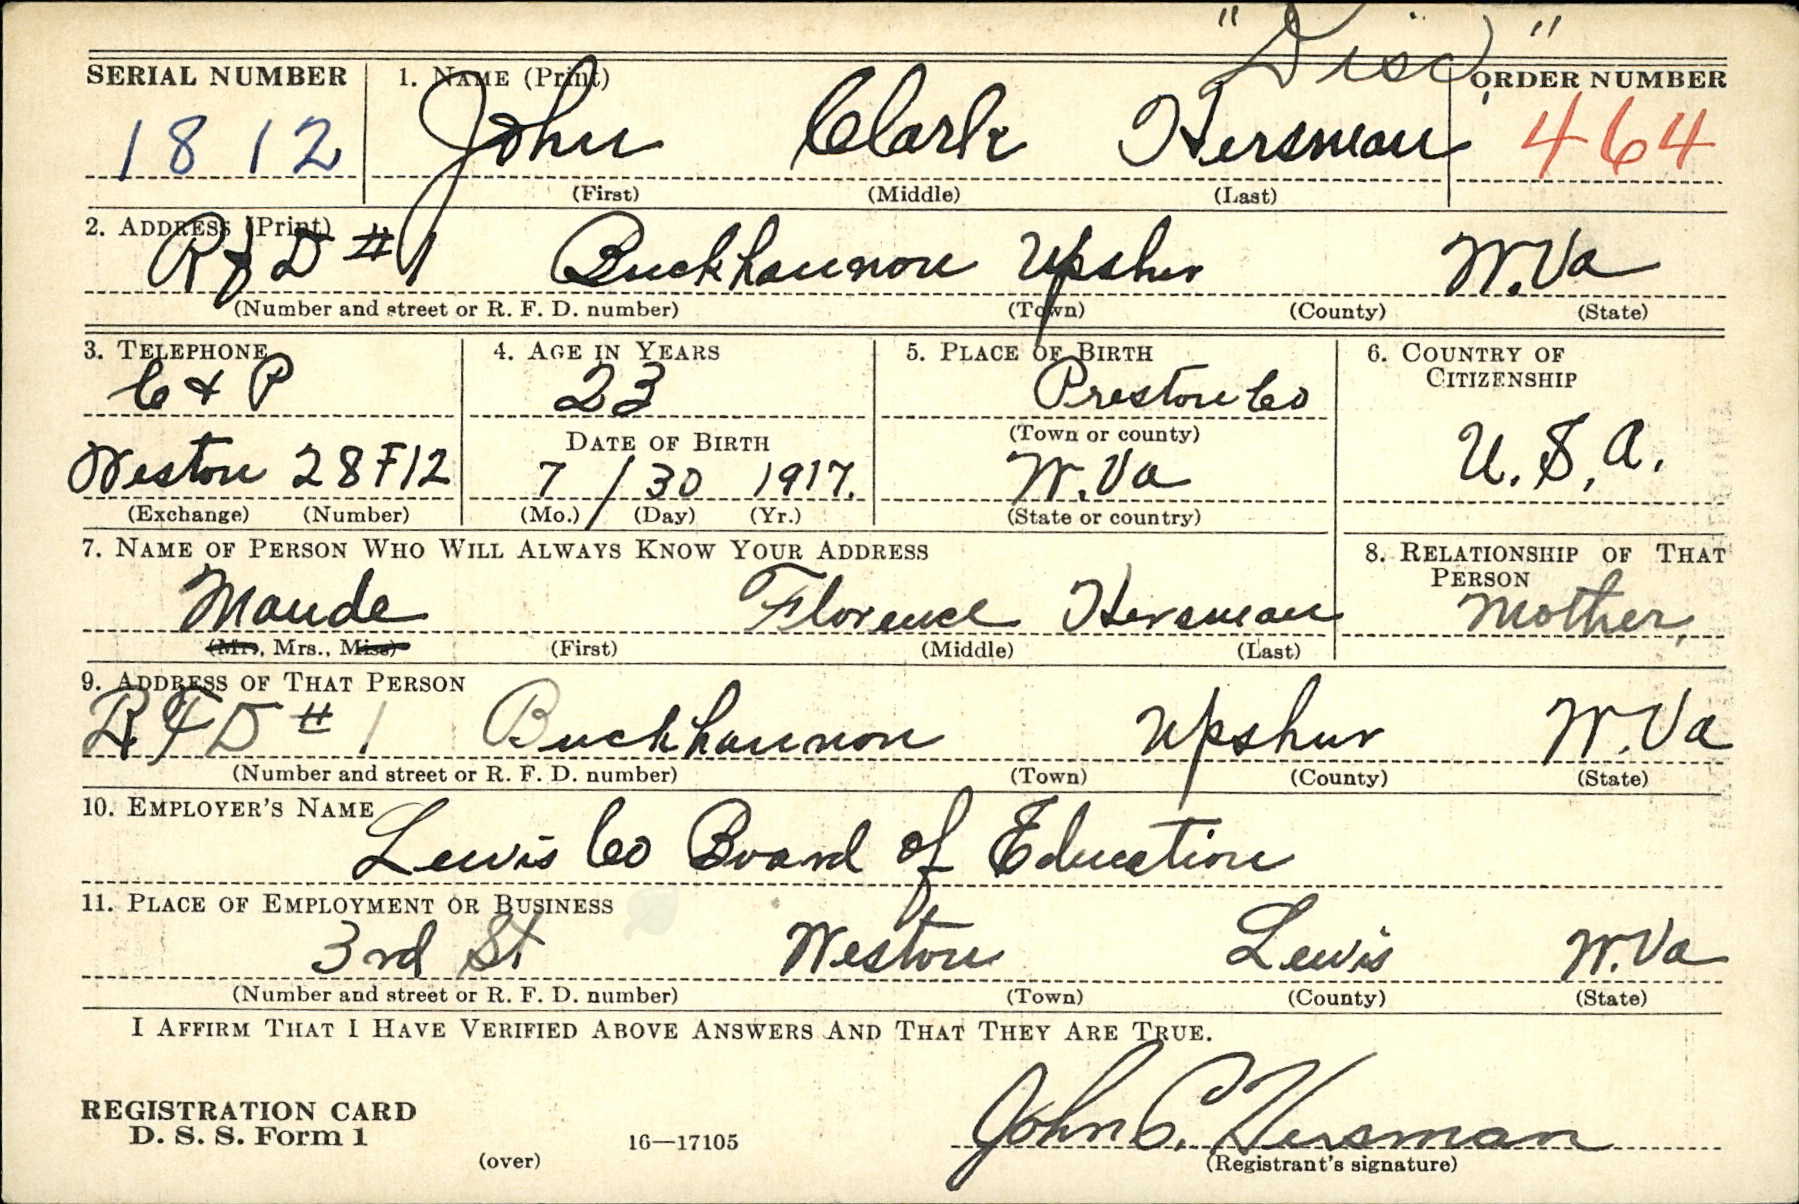 "Disc."
SERIAL NUMBER 1. NAME (Print) ORDER NUMBER
1812 John Clark Hersman 464
(First) (Middle) (Last)
2. ADDRESS (Print)
RFD #1 Buckhannon Upshur W.Va
(Number and street or R. F. D. number) (Town) (County) (State)
3. TELEPHONE 4. AGE IN YEARS 5. PLACE OF BIRTH 6. COUNTRY OF
CITIZENSHIP
C & P 23 Preston Co
DATE OF BIRTH (Town or county) U.S.A.
Weston 28F12 7 / 30 1917. W.Va
(Exchange) (Number) (Mo.) (Day) (Yr.) (State or country)
7. NAME OF PERSON WHO WILL ALWAYS KNOW YOUR ADDRESS 8. RELATIONSHIP OF THAT
PERSON
Maude Florence Hersman Mother,
(Mr., Mrs., Miss) (First) (Middle) (Last)
9. ADDRESS OF THAT PERSON
RFD #1 Buckhannon Upshur W.Va
(Number and street or R. F. D. number) (Town) (County) (State)
10. EMPLOYER'S NAME
Lewis Co Board of Education
11. PLACE OF EMPLOYMENT OR BUSINESS
3rd St Weston Lewis W.Va
(Number and street or R. F. D. number) (Town) (County) (State)
I AFFIRM THAT I HAVE VERIFIED ABOVE ANSWERS AND THAT THEY ARE TRUE.
REGISTRATION CARD
D. S. S. Form 1 16—17105 John C. Hersman
(over) (Registrant's signature)